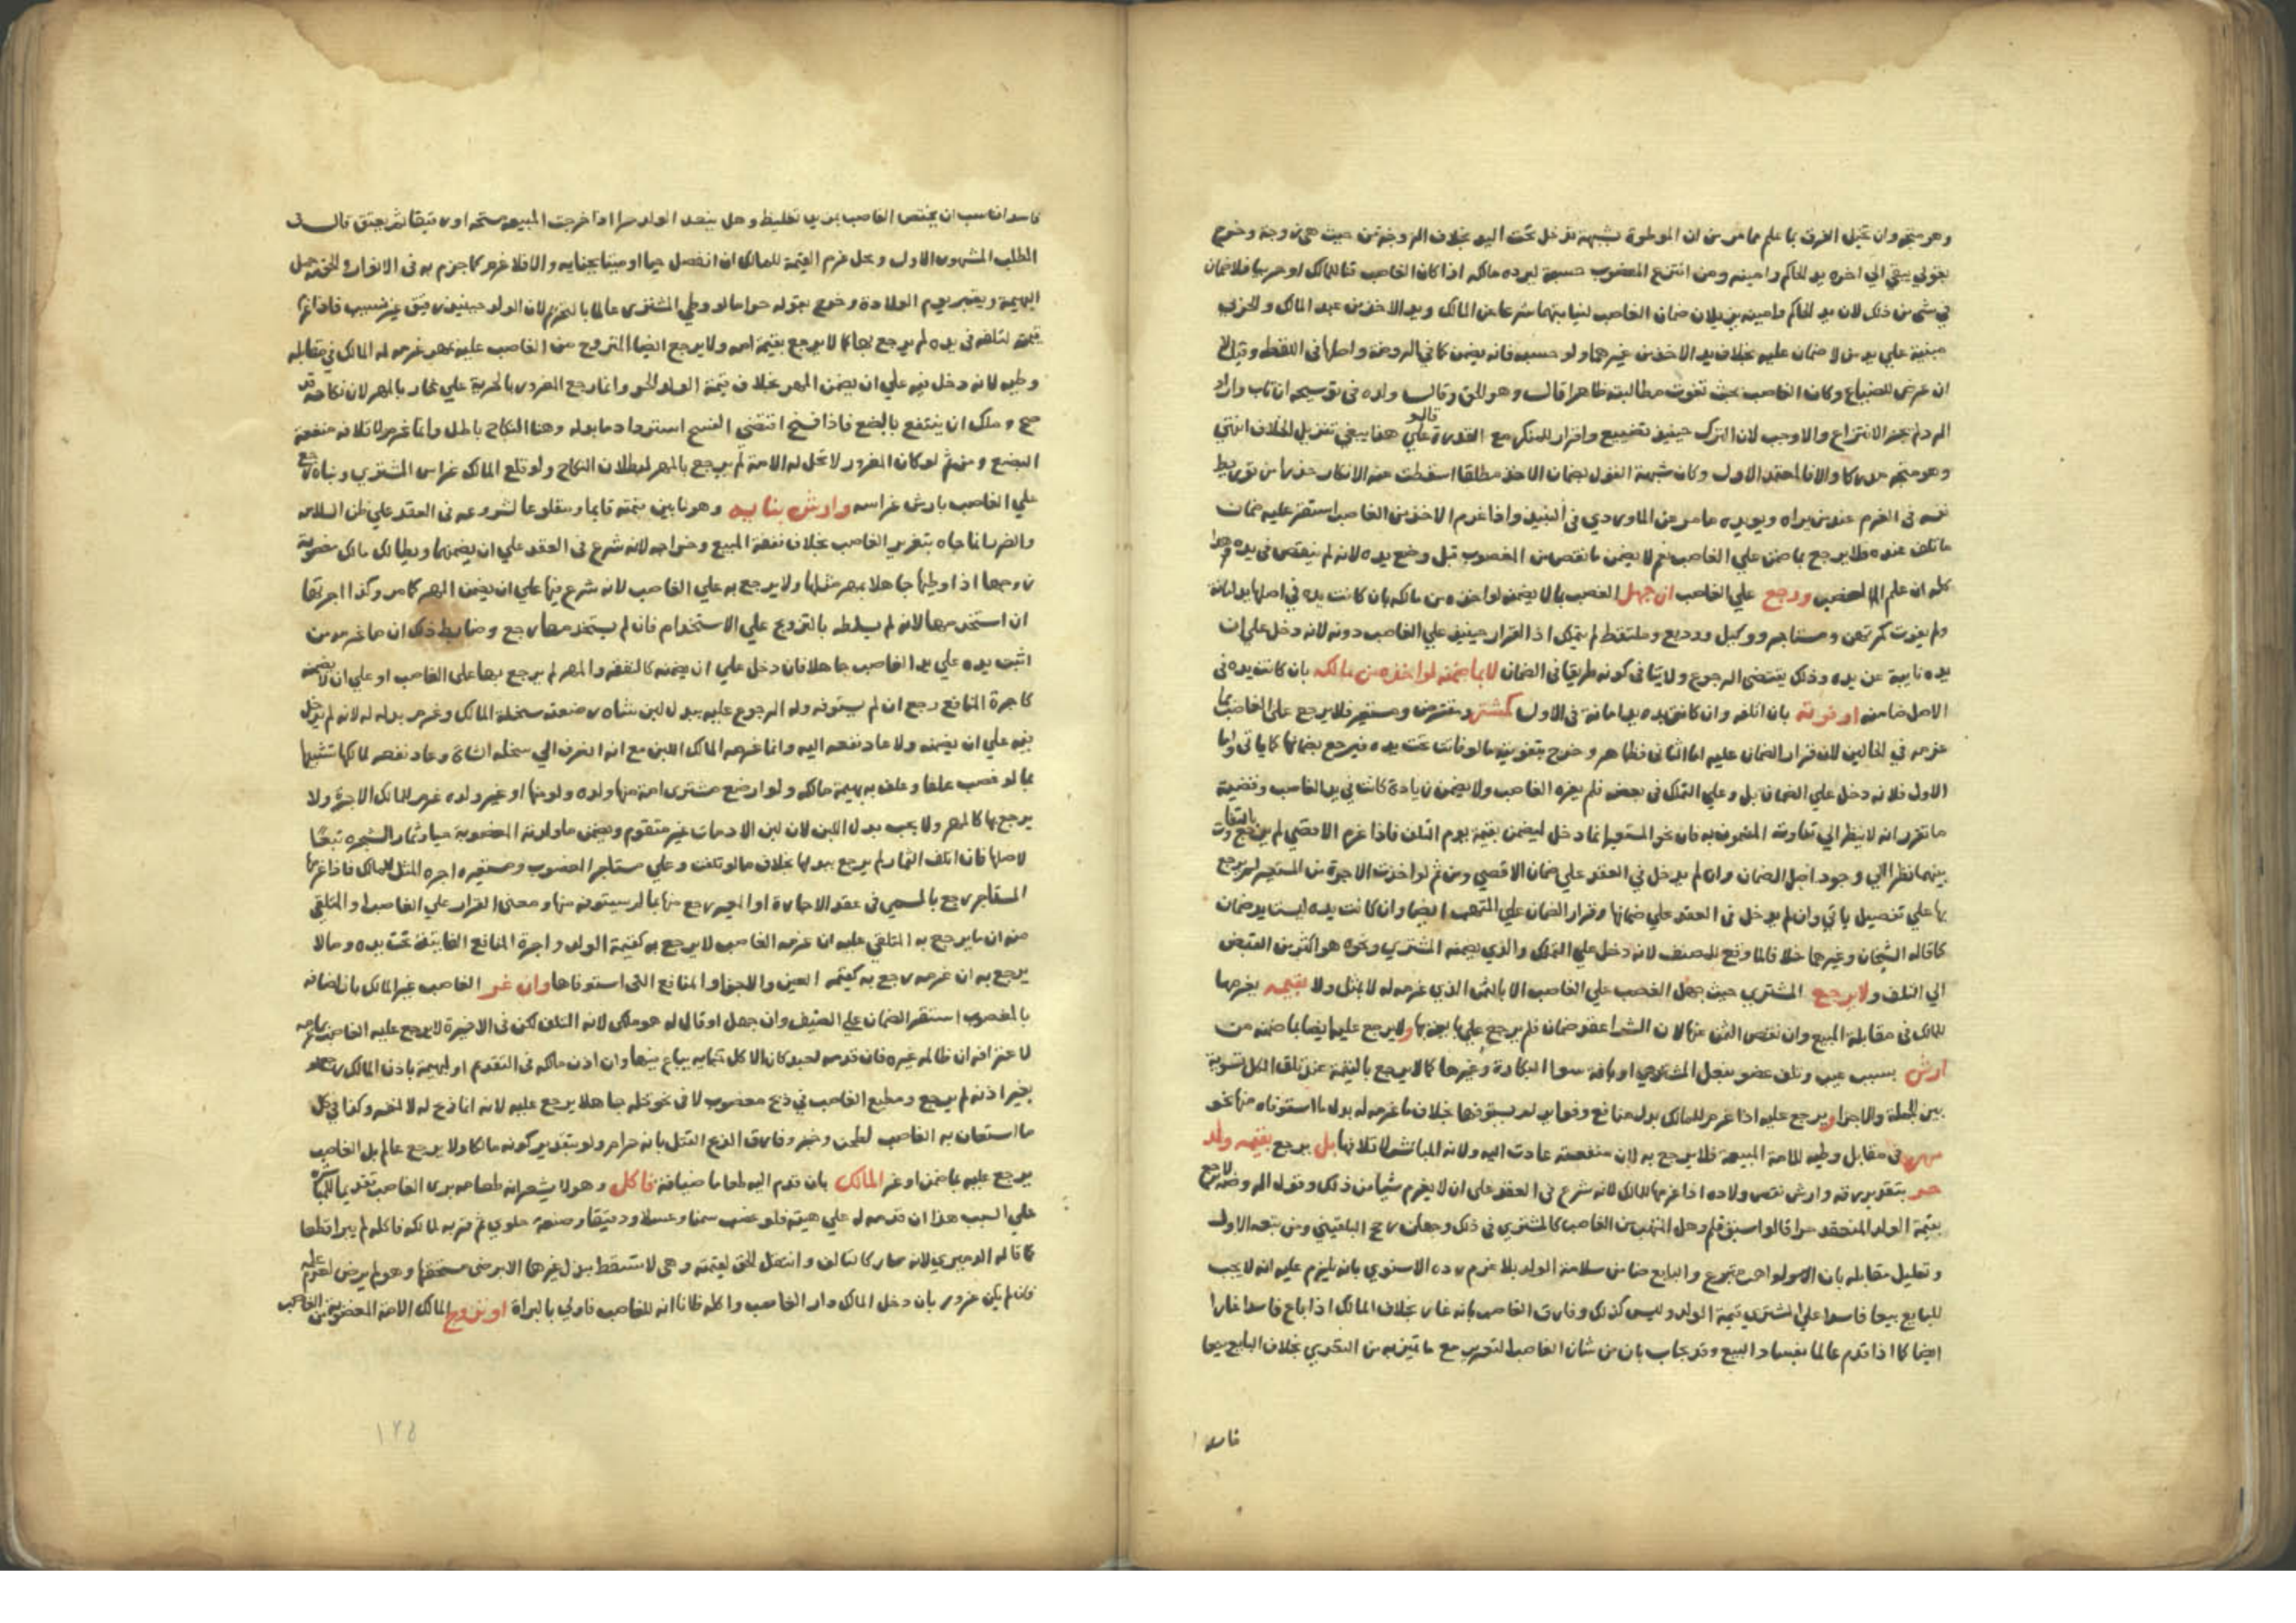 وهو متجه وان تخيل الفرق بما علم مما مر من ان الموطوة بشبهة تدخل تحت اليد بخلاف الزوجة من حيث هي زوجة وخرج
بقولي يبقى الي اخره يد الحاكم وامينه ومن انتزع المغصوب حسبة ليرده مالكه اذا كان الغاصب قنا للمالك او حربيا فلا ضمان
في شي من ذلك لان يد الحاكم وامينه يزيلان ضمان الغاصب لنيابتهما شرعا عن المالك ويد الاخذ من عبد المالك والحربي
مبنية علي يد من لا ضمان عليه بخلاف يد الاخذ من غيرهما ولو حسبه فانه يضمن كما في الروضة واصلها في اللقطه وقيل لا
ان عرض للضياع وكان الغاصب بحيث تفوت مطالبته ظاهرا قال وهو الحق وقال ولده في توسيحه ان تاب واراد
الرد لم يجز الانتزاع والا وجب لان الترك حينئذ تضييع واقرار للمنكر مع القدرة علي قالو هنا ينبغي تنزيل الخلاف انتهي
وهو متجه مدركا والا فالمعتمد الاول وكان شبهة القول بضمان الاخذ مطلقا اسقطت عنه الانكار حذرا من توريط
نفسه في الغرم عند من يراه ويويده ما مر عن الماوردي في النبيذ واذا غرم الاخذ من الغاصب استقر عليه ضمان
ما تلف عنده فلا يرجع بما ضمن علي الغاصب نعم لا يضمن ما نقص من المغصوب قبل وضع يده لانه لم ينقص في يده
كله ان علم الغصب ورجع علي الغاصب ان جهل الغصب بما لا يضمنه لو اخذه من مالكه بان كانت يده في اصلها يد امانة
ولم يفوت كمرتهن ومستاجر ووكيل ووديع وملتقط لم يتملك اذ القرار حينئذ علي الغاصب دونه لانه دخل علي ان
يده نايبة عن يده وذلك يقتضي الرجوع ولا ينافي كونه طريقا في الضمان لا بما ضمنه لو اخذه من مالكه بان كانت يده في
الاصل ضامنه او فوته بان اتلفه وان كانت يده يد امانة في الاول كمشتر ومقترض ومستعير فلا يرجع علي الغاصب بما
غرمه في الحالين لان قرار الضمان عليه اما الثاني فظاهر وخرج بتفويته ما لو فاتت تحت يده فيرجع بضمانها كما ياتي واما
الاول فلانه دخل علي الضمان بل وعلي التملك في بعضه فلم يغره الغاصب ولا يضمن زيادة كانت في يد الغاصب وقضية
ما تقرر انه لا ينظر الي تفاوت المضمون به فان نحو المستعير انما دخل ليضمن بقيمة يوم التلف فاذا غرم الاقصي لم يرجع بالتفاوت
بينهما نظرا الي وجود اصل الضمان وان لم يدخل في العقد علي ضمان الاقصي ومن ثم لو اخذت الاجرة من المستعير لم يرجع
بها علي تفصيل ياتي وان لم يدخل في العقد علي ضمانها وقرار الضمان علي المتهب ايضا وان كانت يده ليست يد ضمان
كما قاله الشيخان وغيرهما خلافا لما وقع للمصنف لانه دخل علي التملك والذي يضمنه المشتري ونحوه هو اكثر من القبض
الي التلف ولا يرجع المشتري حيث جهل الغصب علي الغاصب الا بالثمن الذي غرمه له لا بمثل ولا بقيمه يغرمها
للمالك في مقابلة المبيع وان نقص الثمن عنها لان الشرا عقد ضمان فلم يرجع علي بايعه بها ولا يرجع عليه ايضا بما ضمنه من
ارش بسبب عيب وتلف عضو بفعل المشتري او بافة سوا البكارة وغيرها كما لا يرجع بالقيمة عند تلف الكل تسوية
بين الجملة والاجزا ويرجع عليه اذا غرم للمالك بدل منافع وفوايد لم يستوفها بخلاف ما غرمه له بدل ما استوفاه منها نحو
مهر في مقابل وطيه للامة المبيعة فلا يرجع به لان منفعته عادت اليه ولانه المباشر لاتلافها بل يرجع بقيمه ولد
حر بتقدير رقه وارش نقص ولاده اذا غرمها للمالك لانه شرع في العقد علي ان لا يغرم شيا من ذلك وقول
بقيمة الولد المنعقد حرا قالوا سبق قلم وهل المتهب من الغاصب كالمشتري في ذلك وجهان رجح البلقيني ومن تبعه الاول
وتعليل مقابله بان الواهب متبرع والبايع ضامن سلامة الولد بلا غرم رده الاسنوي بانه يلزم عليه انه لا يجب
للبايع بيعا فاسدا علي المشتري قيمة الولد وليس كذلك وفارق الغاصب بانه غار بخلاف المالك اذا باع فاسدا غارا
ايضا كما اذا قدم عالما بفساد البيع وقد يجاب بان من شان الغاصب التغرير مع ما تميز به من التعدي بخلاف البايع بيعا
فاسدا
فاسدا فناسب ان يختص الغاصب بمزيد تغليظ وهل ينعقد الولد حرا اذا خرجت المبيعه مستحقه او رقيقا ثم يعتق قال في
المطلب المشهور الاول ومحل غرم القيمة للمالك ان انفصل حيا او ميتا بجنايه والا فلا غرم كما جزم به في الانوار والحق به حمل
البهيمة ويعتبر يوم الولادة وخرج بقوله حر ما لو وطي المشتري عالما بالتحريم لان الولد حينئذ رقيق غير نسيب فاذا غرم
قيمته لتلفه في يده لم يرجع بها كما لا يرجع بقيمة امه ولا يرجع ايضا المتزوج من الغاصب عليه بمهر غرمه له المالك في مقابله
وطيه لانه دخل فيه علي ان يضمن المهر بخلاف قيمة الولد الحر وانما رجع المغرور بالحرية علي غار بالمهر لان نكاحه قد
صح وملك ان ينتفع بالبضع فاذا فسخ اقتضي الفسخ استرداد ما بذله وهنا النكاح باطل وانما غرم لاتلافه منفعة
البضع ومن ثم لو كان المغرور لا تحل له الامة لم يرجع بالمهر لبطلان النكاح ولو قلع المالك غراس المشتري وبناه رجع
علي الغاصب بارش غراسه وارش بنايه وهو ما بين قيمته قايما ومقلوعا لشروعه في العقد علي ظن السلامه
والضرر انما جاه بتغرير الغاصب بخلاف نفقة المبيع وخراجه لانه شرع في العقد علي ان يضمنهما ويطالب مالك مغصوبة
زوجها اذا وطيها جاهلا بمهر مثلها ولا يرجع به علي الغاصب لانه شرع فيها علي ان يضمن المهر كما مر وكذا اجرتها
ان استخدمها لانه لم يسلطه بالتزويج علي الاستخدام فان لم يستخدمها رجع وضابط ذلك ان ما غرمه من
اثبت يده علي يد الغاصب جاهلا فان دخل علي ان يضمنه كالنفقه والمهر لم يرجع بها علي الغاصب او علي ان لا يضمنه
كاجرة المنافع رجع ان لم يستوفه وله الرجوع عليه ببدل لبن شاه رضعته سخلة المالك وغرم بدله له لانه لم يدخل
فيه علي ان يضمنه ولا عاد نفعه اليه وانما غرمه المالك اللبن مع انه انصرف الي سخله الشاة وعاد نفعه لمالكها تشبيها
بما لو غصب علفا وعلف به بهيمة مالكه ولو ارضع مشتري امة منها ولده ولو منها او غير ولده غرم للمالك الاجرة ولا
يرجع بها كالمهر ولا يجب بدل اللبن لان لبن الادميات غير متقوم ويضمن ما ولدته المغصوبة حيا وثمار الشجره تبعا
لاصلها فان اتلف الثمار لم يرجع ببدلها بخلاف ما لو تلفت وعلي مستاجر المغصوب ومستعيره اجره المثل للمالك فاذا غرمها
المستاجر رجع بالمسمي في عقد الاجارة او المعير رجع منها بما لم يستوفه منها ومعني القرار علي الغاصب او المتلقي
منه ان ما يرجع به المتلقي عليه ان غرمه الغاصب لا يرجع به كقيمة الولد واجرة المنافع الفايتة تحت يده وما لا
يرجع به ان غرمه رجع به كقيمه العين والاجزا والمنافع التي استوفاها وان غر الغاصب غير المالك باضافه
بالمغصوب استقر الضمان علي الضيف وان جهل او قال له هو ملكي لانه المتلف لكن في الاخيرة لا يرجع عليه الغاصب بما غرمه
لاعترافه ان ظالمه غيره فان قدمه لعبد كان الاكل جنايه يباع فيها وان اذن مالكه في التقديم او لبهيمة باذن المالك رجع او
بغير اذنه لم يرجع ومطيع الغاصب في ذبح مغصوب لا في نحو قتله جاهلا يرجع عليه لانه انما ذبح له لا لنفسه وكذا في كل
ما استعان به الغاصب لطحن وخبز وفارق الذبح القتل بانه حرام ولو بتقدير كونه مالكا ولا يرجع عالم بل الغاصب
يرجع عليه بما ضمن او غر المالك بان قدم اليه طعاما ضيافة فاكل وهو لا يشعر انه طعامه بري الغاصب تقديما للمباشره
علي السبب هذا ان قدمه له علي هيئته فلو غصب سمنا وعسلا ودقيقا وصنعه حلوي ثم قدمه لمالكه فاكله لم يبرا قطعا
كما قاله الزبيري لانه صار كالتالف وانتقل الحق لقيمته وهي لا تسقط ببذل غيرها الا برضي مستحقها وهو لم يرض لعدم علمه
فان لم يكن غرور بان دخل المالك دار الغاصب واكله ظانا انه للغاصب فاولي بالبراة او تزوج المالك الامة المغصوبة من الغاصب
١٢٥